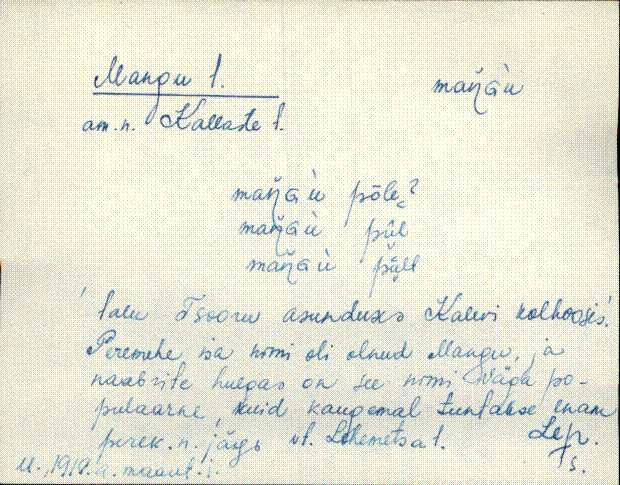 Mangu t.
maŋ̆ɢù
am.n. Kallaste t.
maŋ̆ɢù põle
maŋ̆ɢù pûl
maŋ̆ɢù
talu Tsooru asunduses Kalevi kolhoosis.
Peremehe isa nimi oli olnud Mangu, ja
naabrite hulgas on see nimi väga po-
pulaarne, kuid kaugemal tuntakse enam
perek.n. järgi vt. Lehemetsa t.